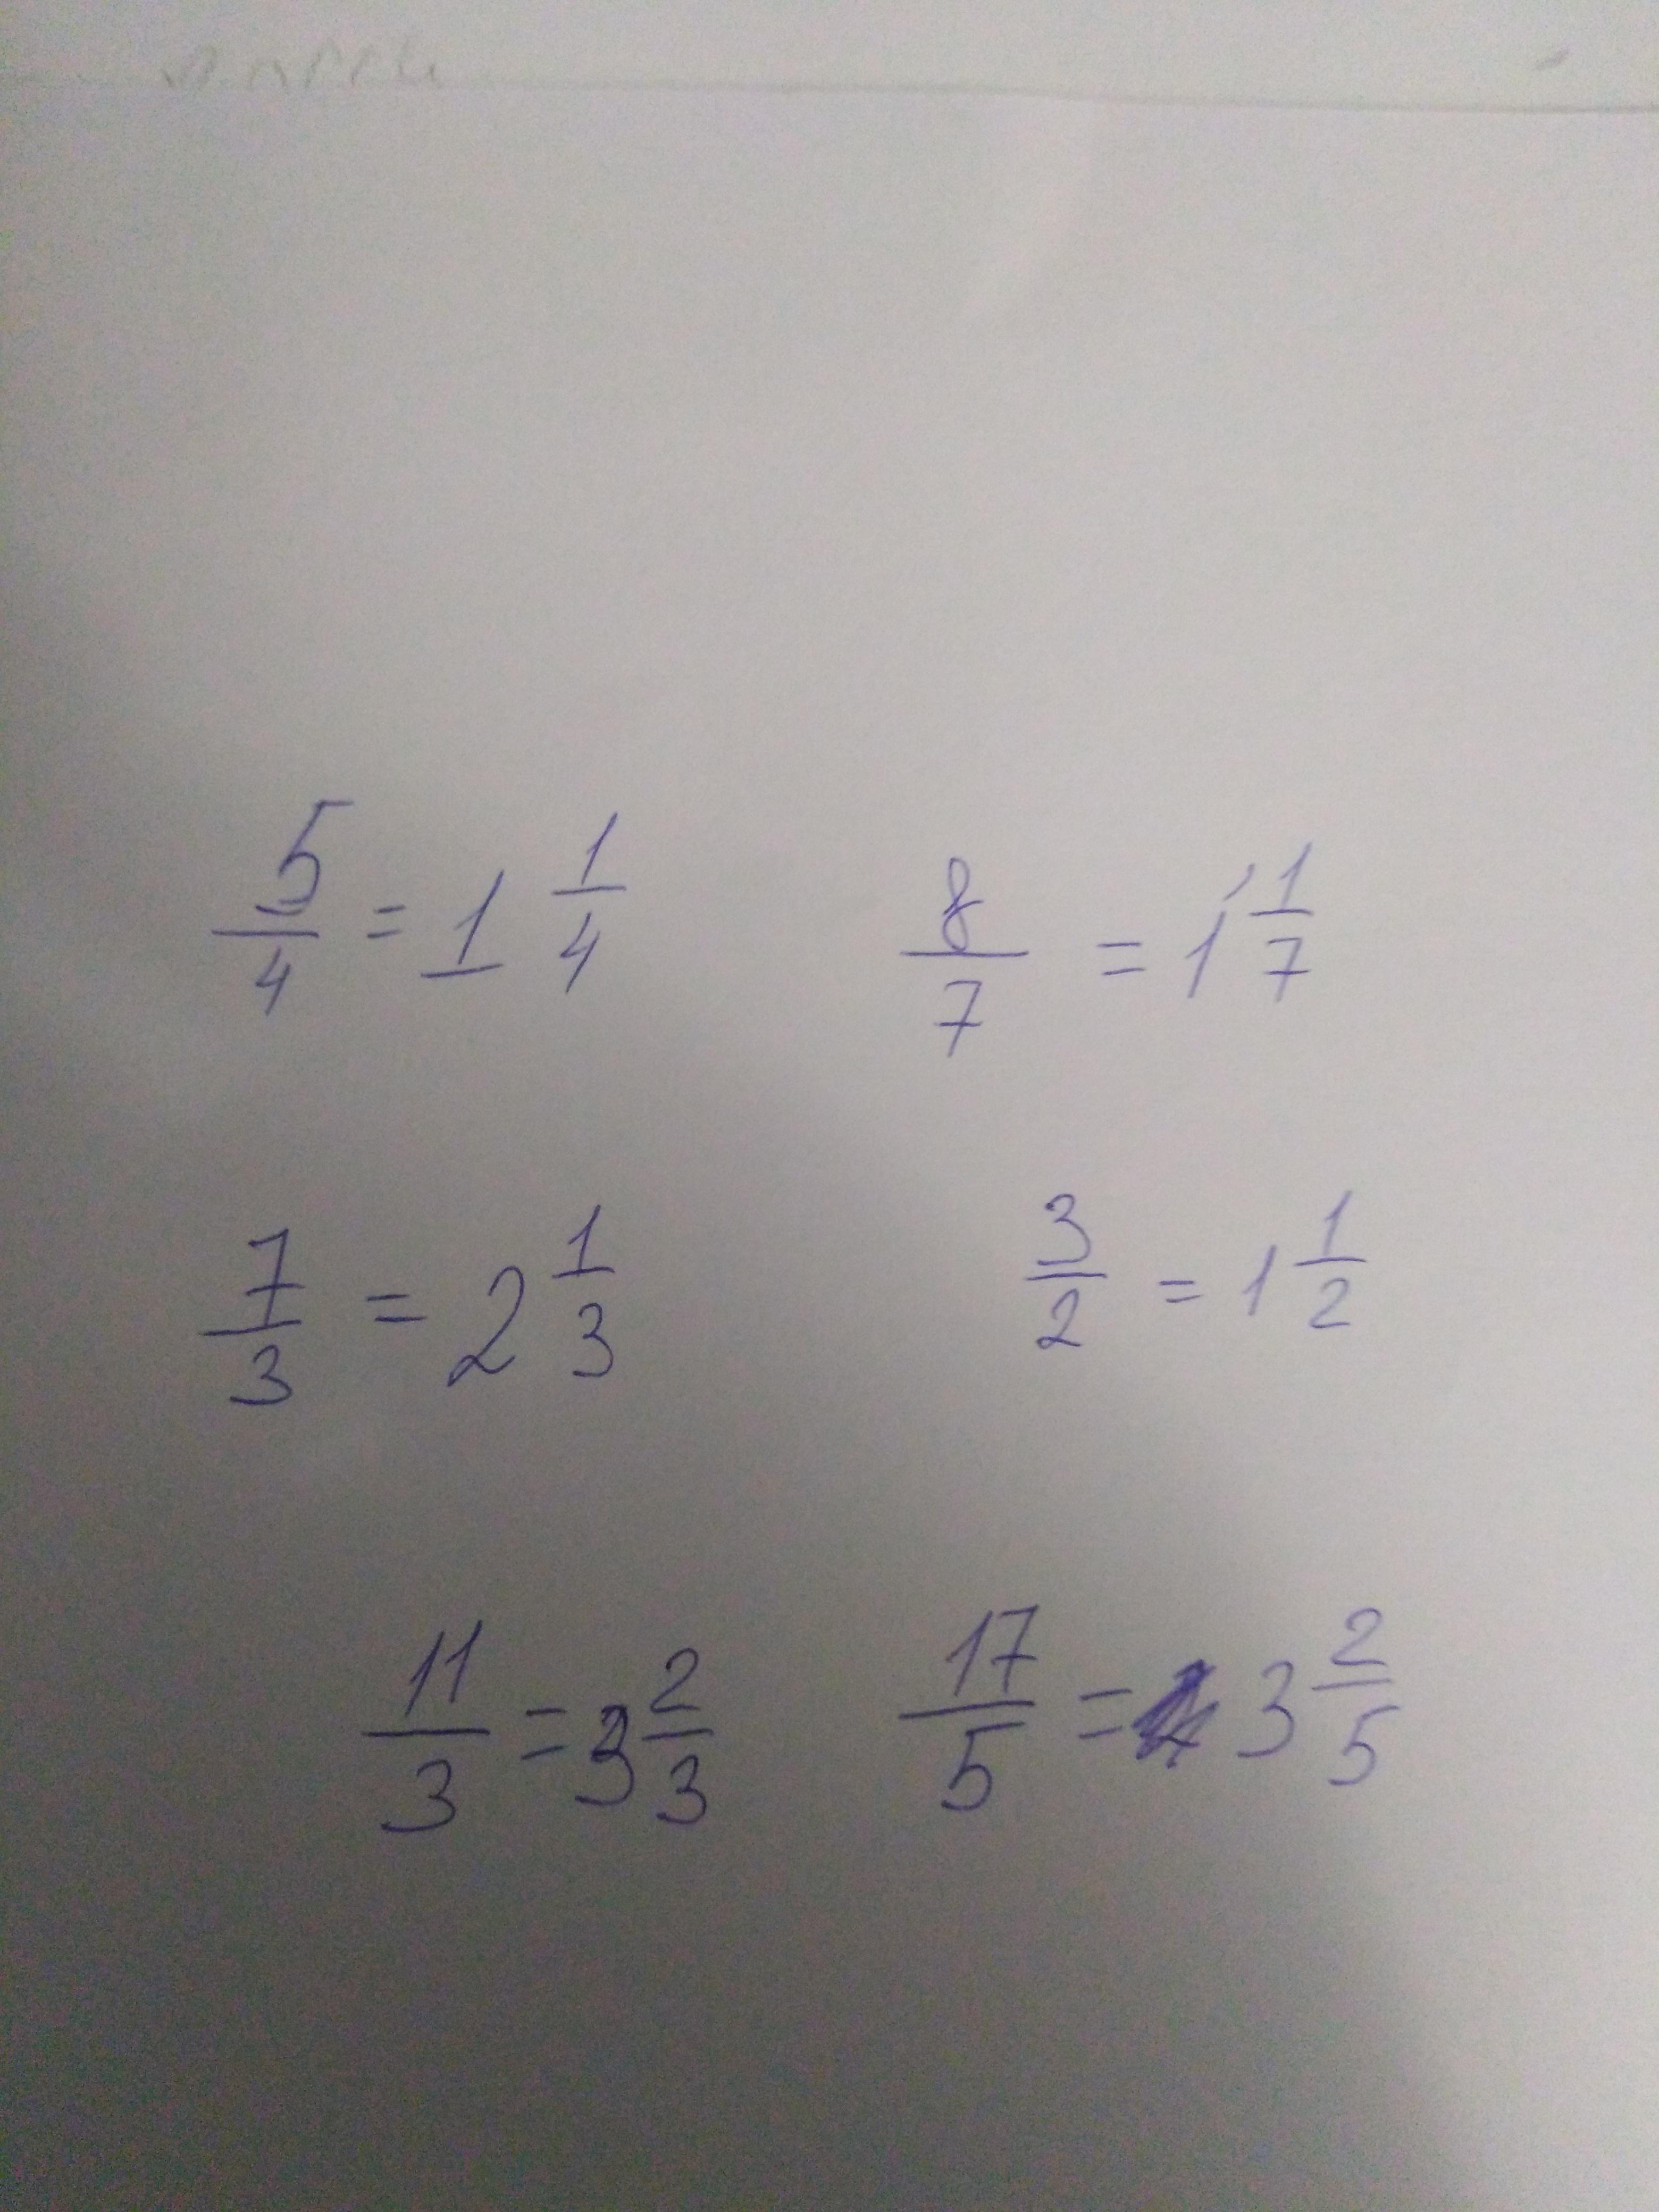 5/4 = 1 1/4 8/7 = 1 1/7
7/3 = 2 1/3 3/2 = 1 1/2
11/3 = 3 2/3 17/5 = 3 2/5